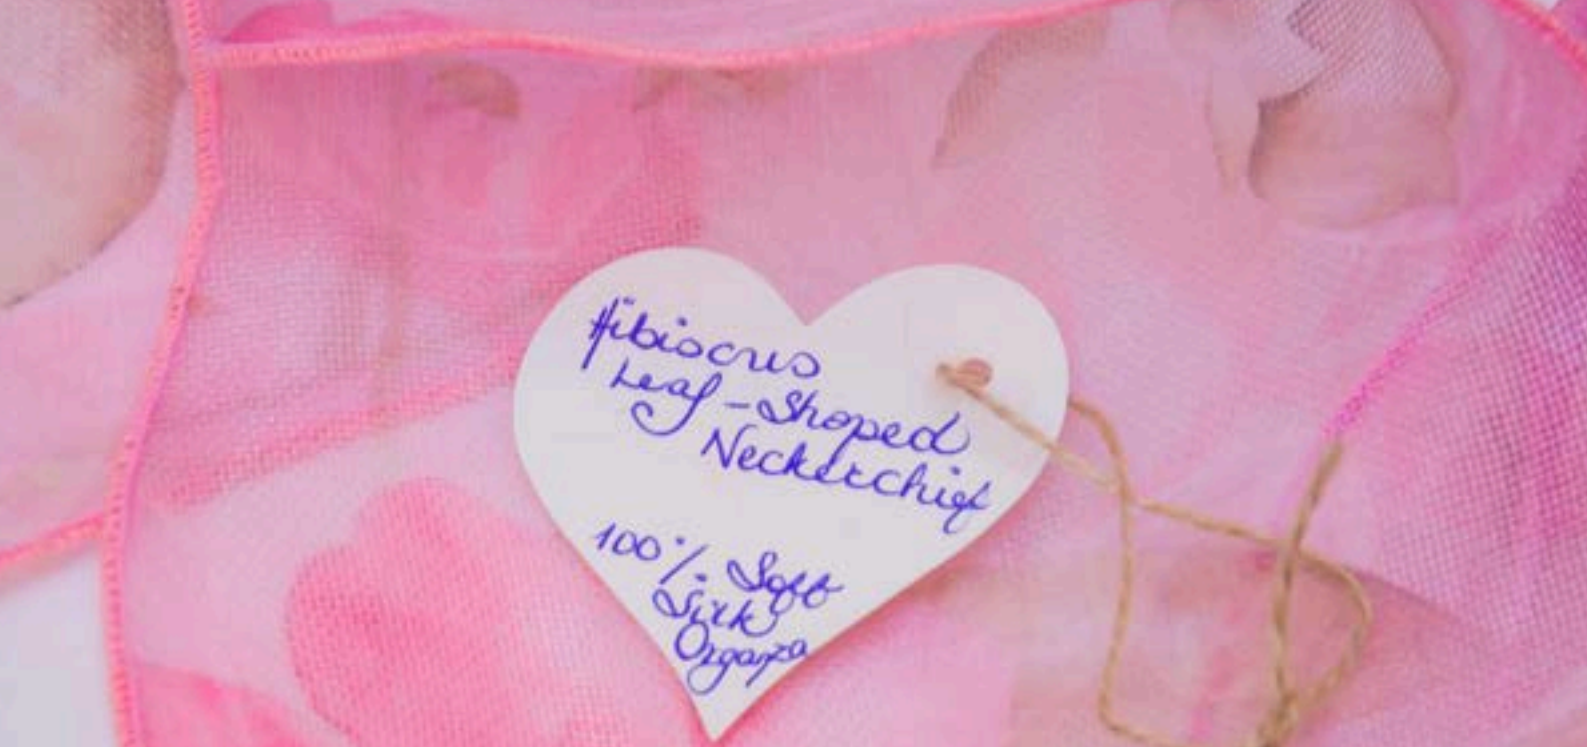 Hibiscus
Leaf-Shaped
Neckerchief
100% Soft
Silk
Organza